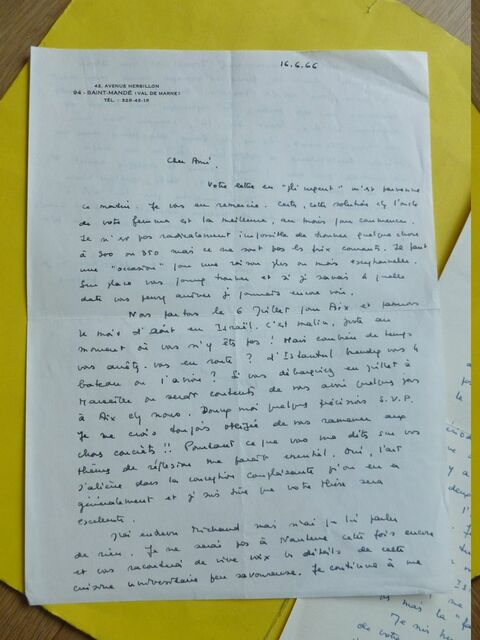 16.6.66
42, AVENUE HERBILLON
94 - SAINT-MANDÉ (VAL DE MARNE)
TÉL. : 328-42-19
Cher Ami,
Votre lettre en "pli urgent" m'est parvenue
ce matin. Je vous en remercie. Certes, cette solution
de votre femme est la meilleure, au moins pour commencer.
Il n'est pas radicalement impossible de trouver quelque chose
à 300 ou 350 mais ce ne sont pas les prix courants. Il faut
une "occasion" pour une raison plus ou moins exceptionnelle.
Sur place vous pourrez trouver et si je savais à quelle
date vous pensez arriver je pourrais encore voir.
Nous partons le 6 Juillet pour Aix et passons
le mois d'Août en Israël. C'est malin, juste au
moment où vous n'y êtes pas ! Mais combien de temps
vous arrêtez-vous en route ? d'Istanbul prendrez vous le
bateau ou l'avion ? Si vous débarquez en juillet à
Marseille on serait contents de vous avoir quelques jours
à Aix chez nous. Donnez moi quelques précisions S.V.P.
Je me crois toujours obligée de vous ramener aux
choses concrètes !! Pourtant ce que vous me dites sur vos
thèmes de réflexion me paraît essentiel. Oui, l'art
s'aliène dans la conception complaisante qu'on en a
généralement et je suis sûre que votre thèse sera
excellente.
J'ai entrevu Michaud mais n'ai pu lui parler
de rien. Je ne serai pas à Nanterre cette fois encore
et vous raconterai de vive voix les détails de cette
cuisine universitaire peu savoureuse. Je continue à me